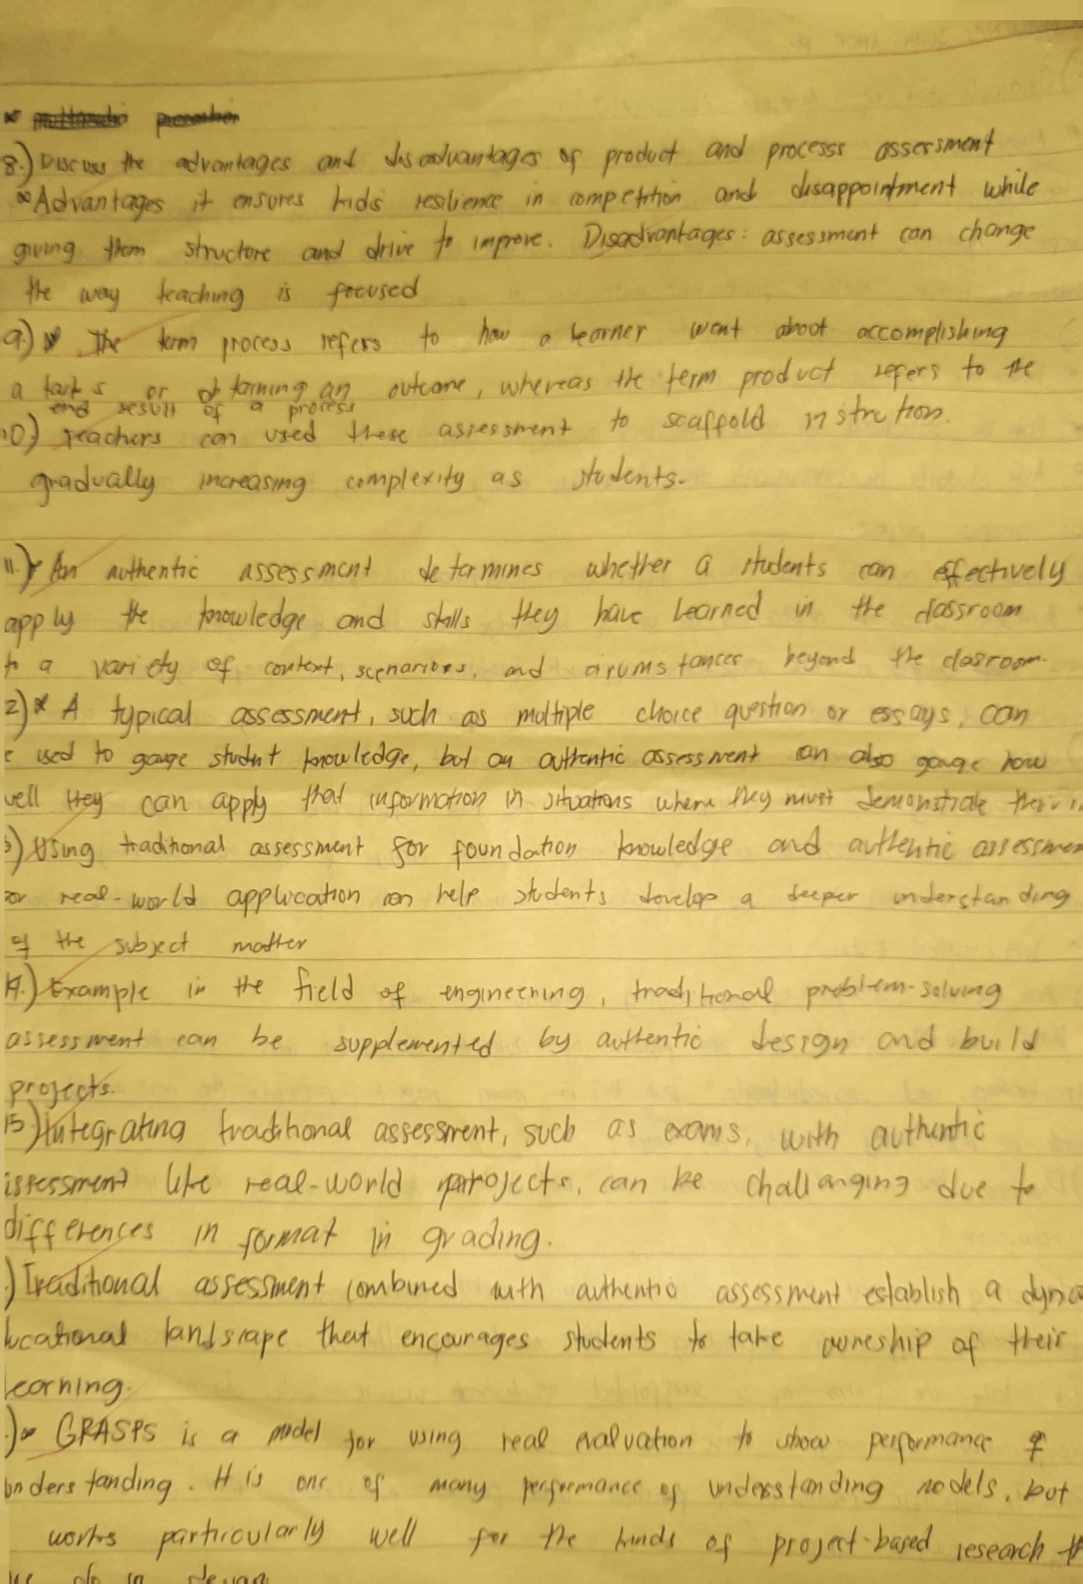 8.) Discuss the advantages and disadvantages of product and processs assessment
* Advantages it ensures kids resilience in competition and disappointment while
giving them structure and drive to improve. Disadvantages: assessment can change
the way teaching is focused
9.) The term process refers to how a learner went about accomplishing
a task s or of forming an outcome, whereas the term product refers to the
end result of a process
10) Teachers can used these assessment to scaffold instruction.
gradually increasing complexity as students.
11.) An authentic assessment determines whether a students can effectively
apply the knowledge and skills they have learned in the classroom
to a variety of context, scenarios, and circumstances beyond the classroom.
2) * A typical assessment, such as multiple choice question or essays, can
e used to gauge student knowledge, but an authentic assessment can also gauge how
well they can apply that information in situations where they must demonstrate their
) Using traditional assessment for foundation knowledge and authentic assessmen
or real-world application can help students develop a deeper understanding
of the subject matter
14.) Example in the field of engineering, traditional problem-solving
assessment can be supplemented by authentic design and build
projects.
15) Integrating traditional assessment, such as exams, with authentic
assessment like real-world projects, can be challanging due to
differences in format in grading.
.) Traditional assessment combined with authentic assessment establish a dyna
ucational landscape that encourages students to take owneship of their
learning.
.) GRASPS is a model for using real evaluation to show performance of
understanding. It is one of many performance of understanding models, but
works particularly well for the kinds of project-based research th
we do in